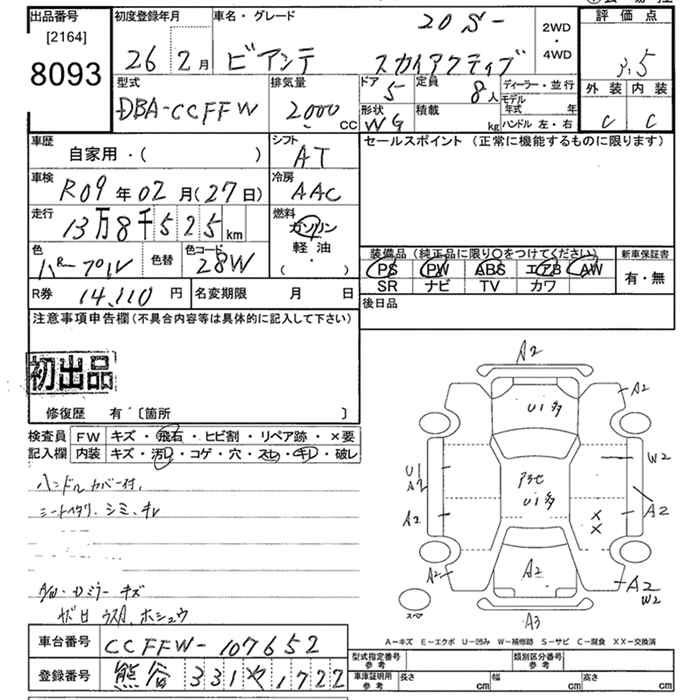 出品番号
[2164]
8093
初度登録年月
26 2月
車名・グレード
20S-
ビアンテ スカイアクティブ
2WD
・
4WD
評価点
3.5
外装 内装
C C
型式
DBA-CCFFW
排気量
2000
CC
ドア
5
定員
8人
形状
WG
積載
kg
ディーラー・並行
モデル
年式 年
ハンドル 左・右
車歴
自家用・( )
シフト
AT
セールスポイント (正常に機能するものに限ります)
車検
R09年02月(27日)
冷房
AAC
走行
13万8千525km
燃料
ガソリン
軽油
( ・ )
色
パープル
色替
色コード
28W
装備品(純正品に限り○をつけてください)
PS PW ABS エアB AW
SR ナビ TV カワ
新車保証書
有・無
R券 14,110円
名変期限 月 日
後日品
注意事項申告欄(不具合内容等は具体的に記入して下さい)
初出品
修復歴 有〔箇所 〕
検査員
記入欄
FW キズ・飛石・ヒビ割・リペア跡・×要
内装 キズ・汚レ・コゲ・穴・スレ・キレ・破レ
ハンドルカバー付,
シートヘタリ、シミ、キレ
A/W・Dミラー キズ
A2
U1多
A2
U1
A2
W2
U1多
A2
A2
×
×
A2
A2
A2
W2
A3
スペア
A-キズ E-エクボ U-凹み W-補修跡 S-サビ C-腐食 XX-交換済
車台番号 CCFFW-107652
登録番号 熊谷 331 や 1722
型式指定番号
参考
類別区分番号
参考
車庫証明用
参考
長さ cm 幅 cm 高さ cm